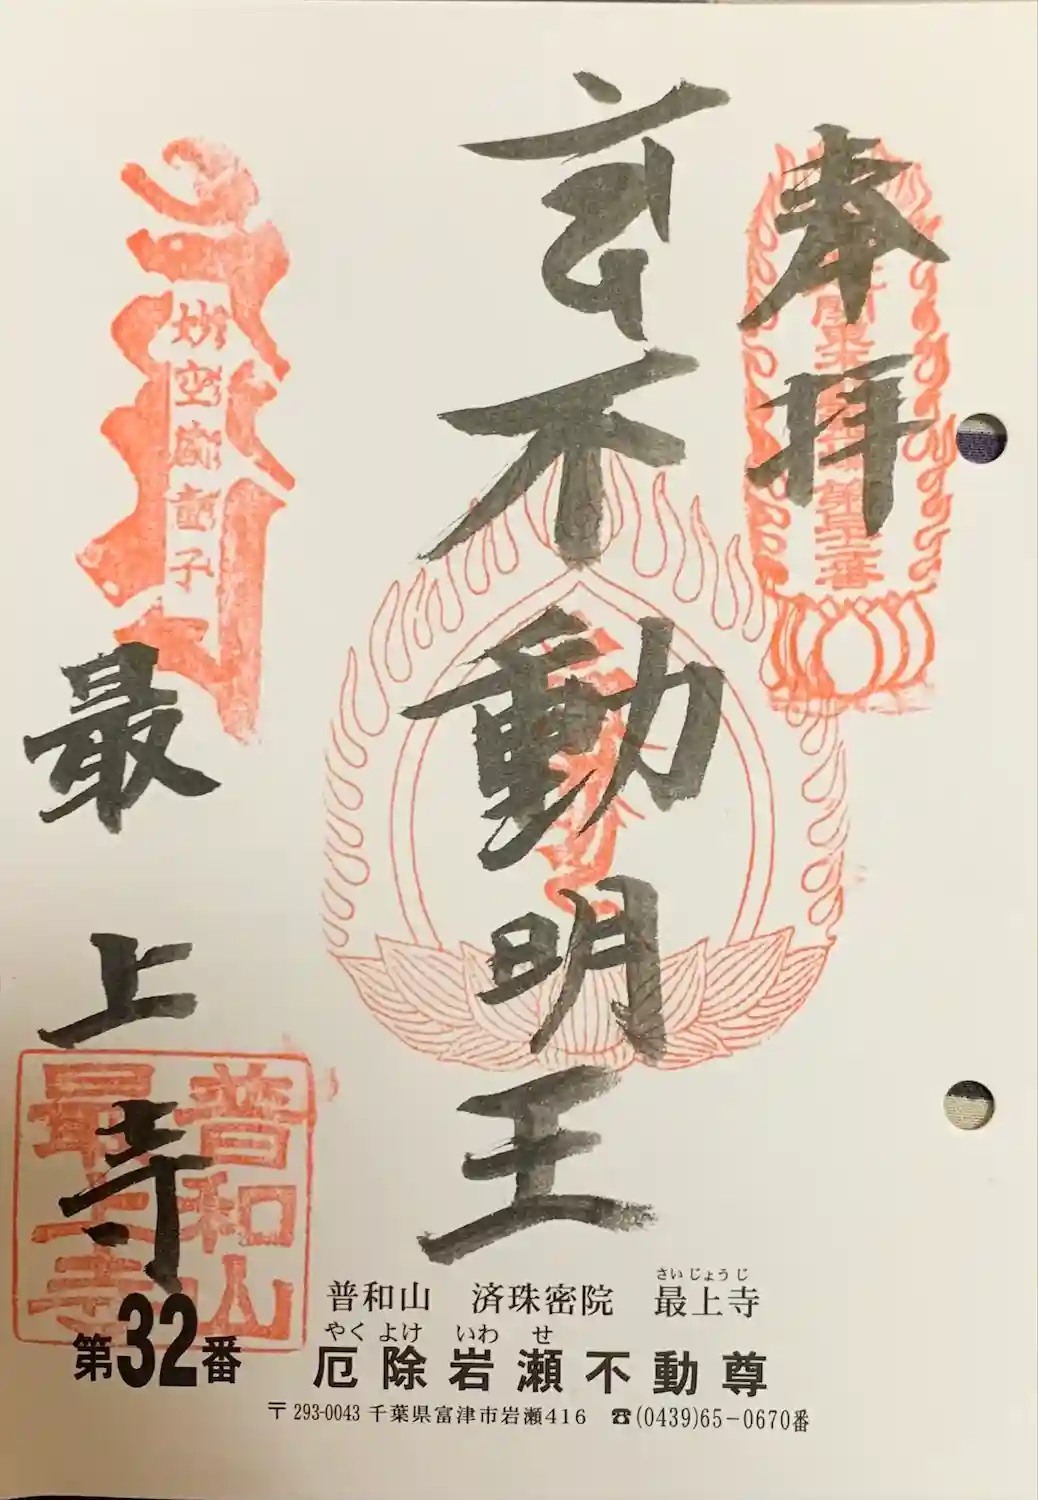 奉拝
不動明王
最上寺
妙空廊童子
普和山
最上寺
普和山 済珠密院 最上寺
さいじょうじ
第32番
厄除岩瀬不動尊
やくよけ いわせ
〒293-0043 千葉県富津市岩瀬416 ☎(0439)65-0670番